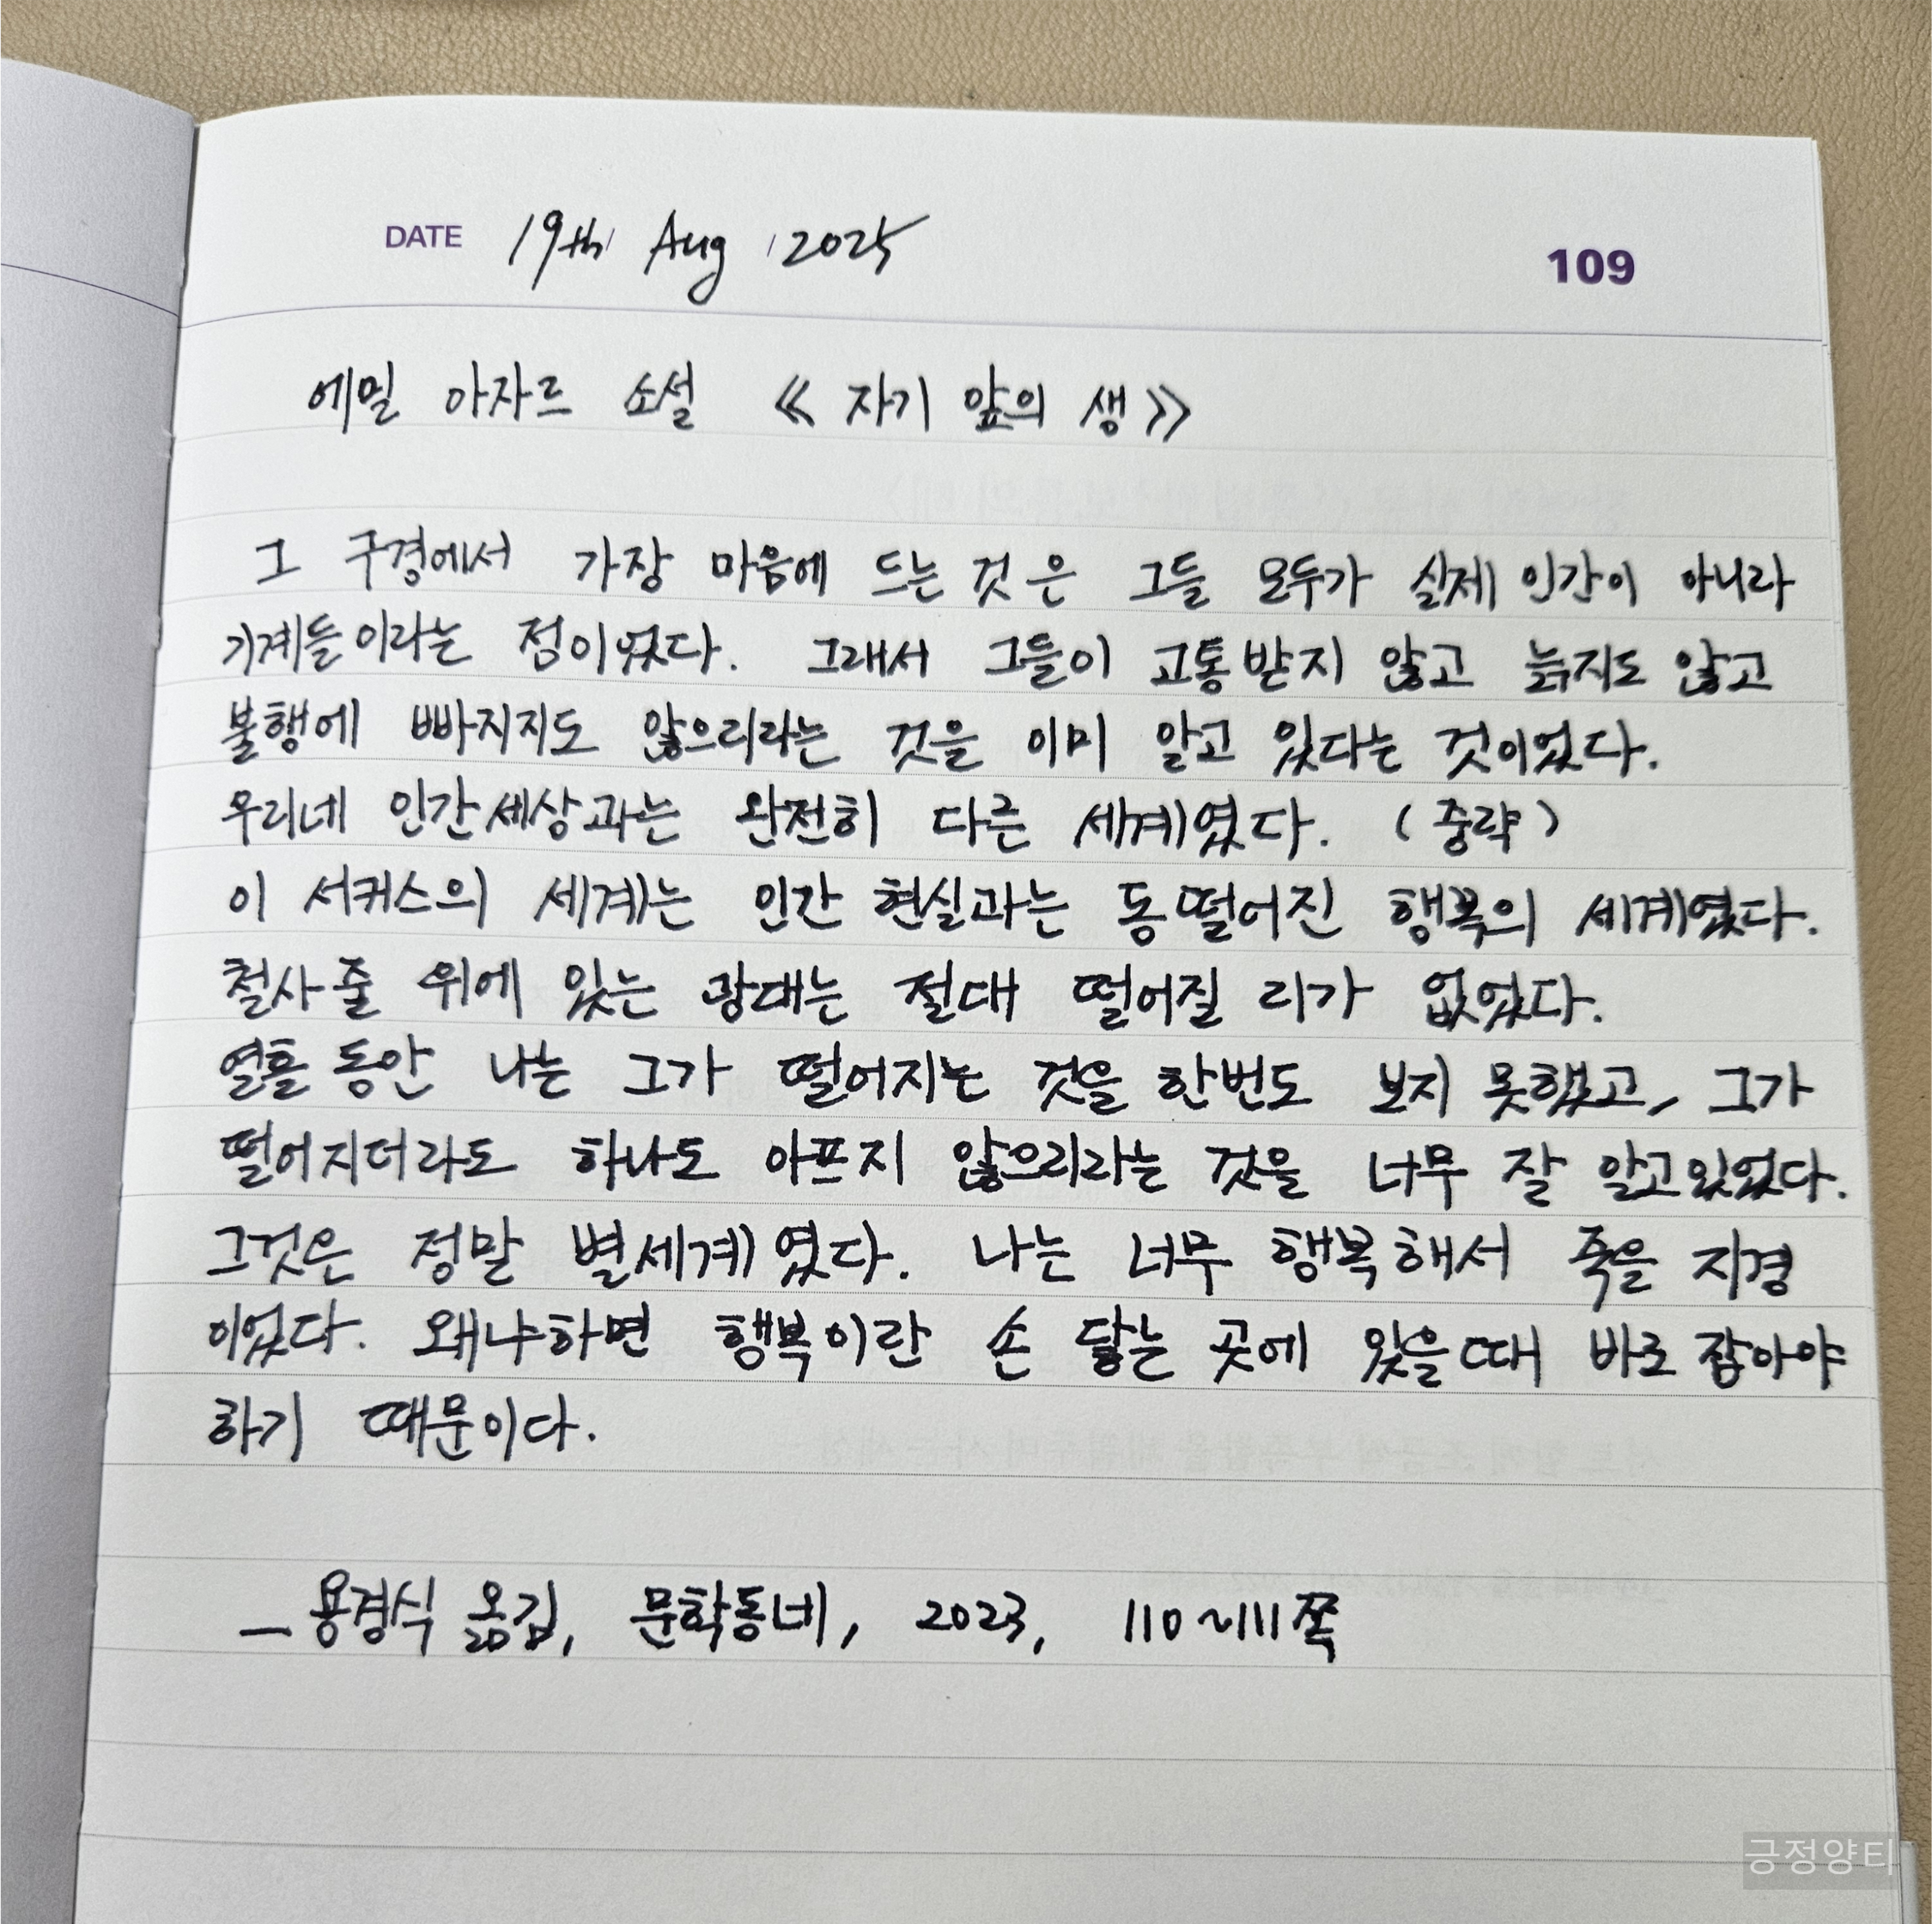 DATE 19th Aug 2025
109
에밀 아자르 소설 《자기 앞의 생》
그 구경에서 가장 마음에 드는 것은 그들 모두가 실제 인간이 아니라
기계들이라는 점이었다. 그래서 그들이 고통받지 않고 늙지도 않고
불행에 빠지지도 않으리라는 것을 이미 알고 있다는 것이었다.
우리네 인간세상과는 완전히 다른 세계였다. (중략)
이 서커스의 세계는 인간 현실과는 동떨어진 행복의 세계였다.
철사줄 위에 있는 광대는 절대 떨어질 리가 없었다.
열흘 동안 나는 그가 떨어지는 것을 한번도 보지 못했고, 그가
떨어지더라도 하나도 아프지 않으리라는 것을 너무 잘 알고있었다.
그것은 정말 별세계였다. 나는 너무 행복해서 죽을 지경
이었다. 왜냐하면 행복이란 손 닿는 곳에 있을때 바로 잡아야
하기 때문이다.
― 용경식 옮김, 문학동네, 2023, 110~111쪽
긍정양티